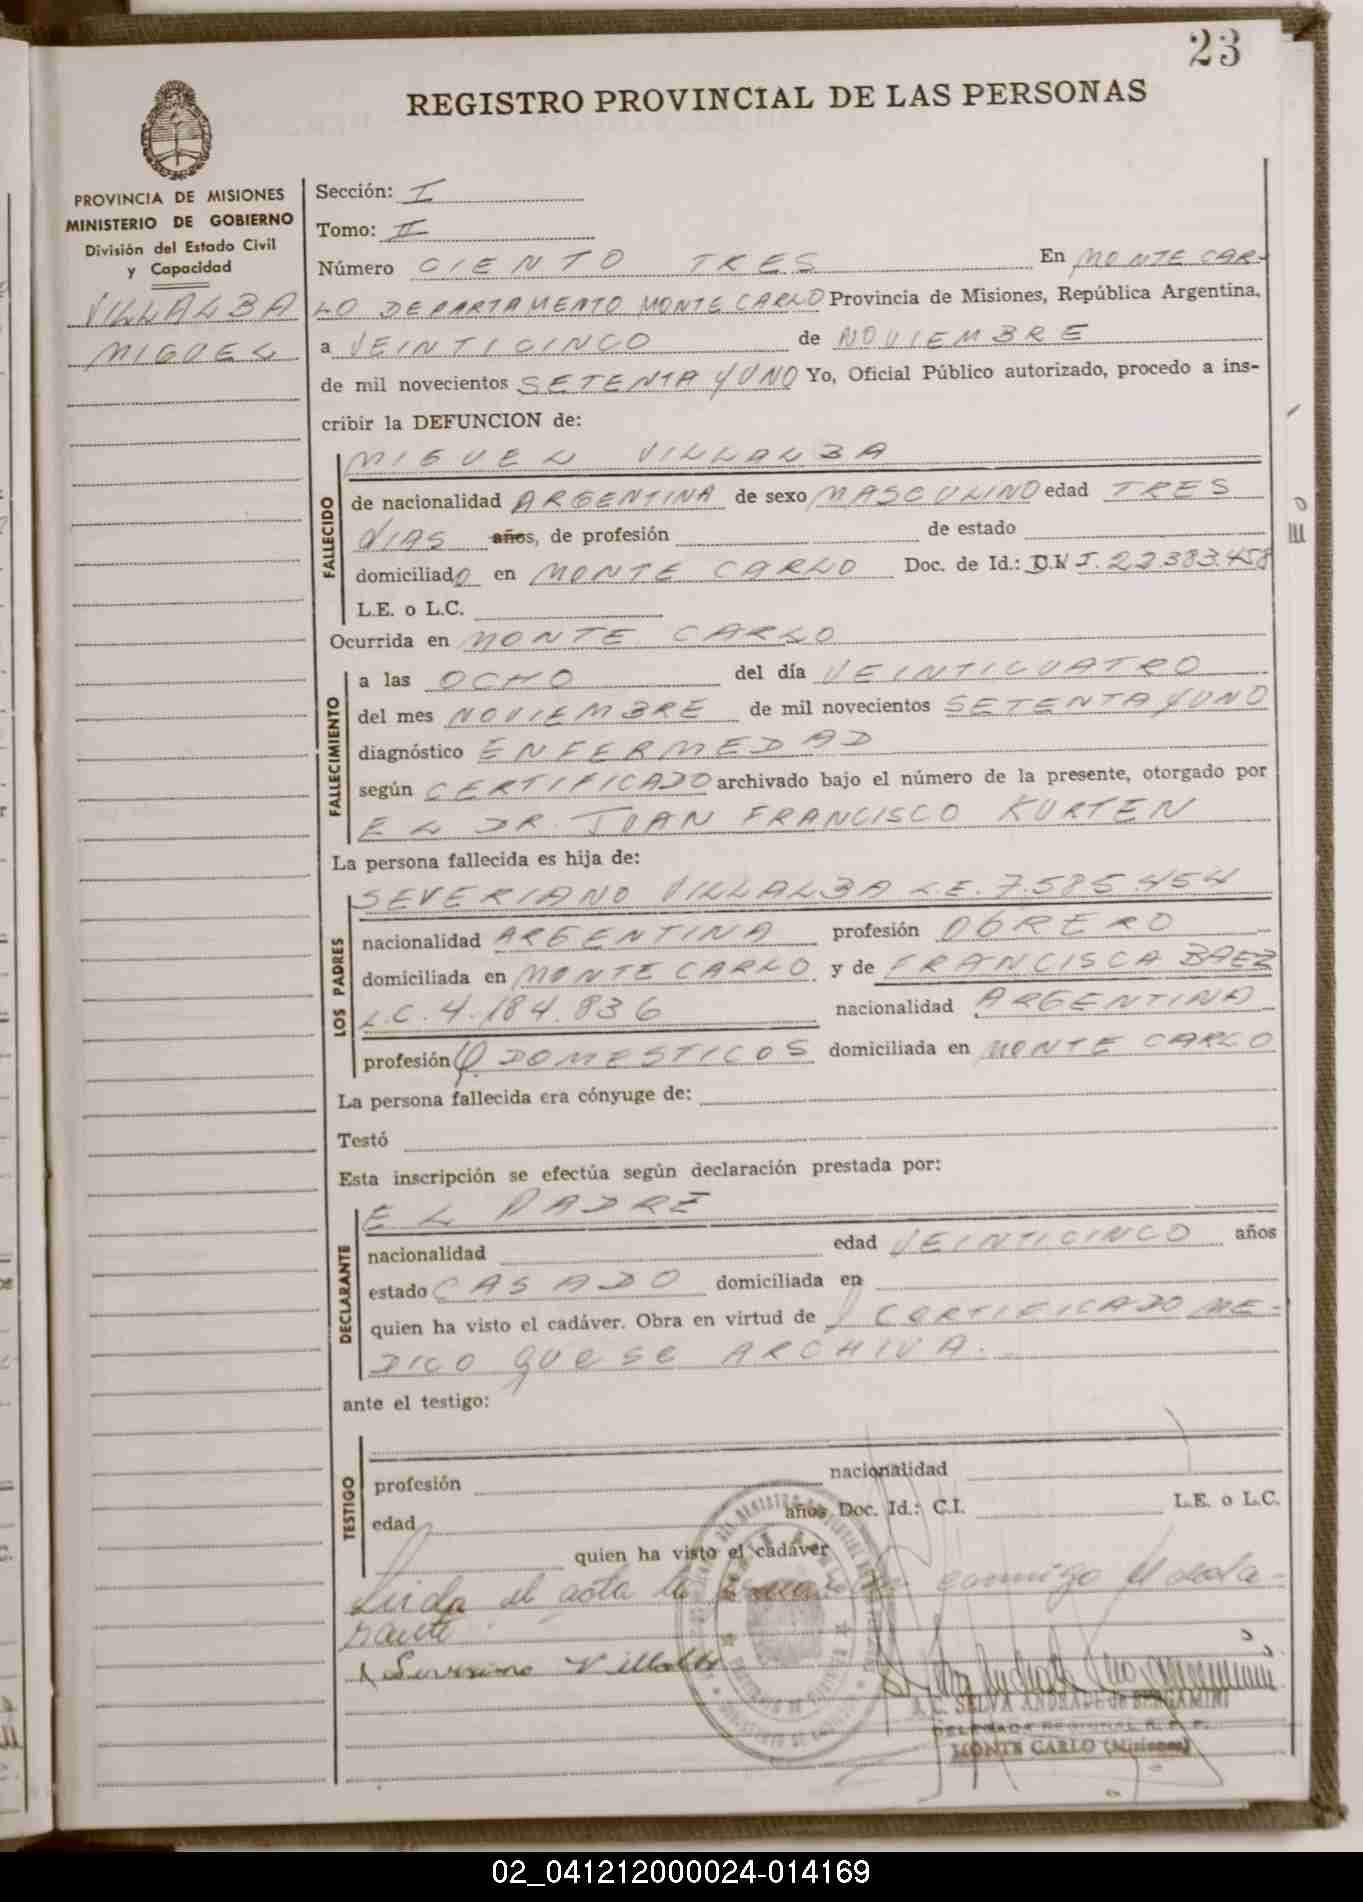 23
REGISTRO PROVINCIAL DE LAS PERSONAS
PROVINCIA DE MISIONES
MINISTERIO DE GOBIERNO
División del Estado Civil
y Capacidad
VILLALBA
MIGUEL
Sección: I
Tomo: II
Número CIENTO TRES En MONTE CAR-
LO DEPARTAMENTO MONTE CARLO Provincia de Misiones, República Argentina,
a VEINTICINCO de NOVIEMBRE
de mil novecientos SETENTA Y UNO Yo, Oficial Público autorizado, procedo a ins-
cribir la DEFUNCION de:
FALLECIDO
MIGUEL VILLALBA
de nacionalidad ARGENTINA de sexo MASCULINO edad TRES
DIAS años, de profesión de estado
domiciliado en MONTE CARLO Doc. de Id.: D.N I. 22.383.458
L.E. o L.C.
Ocurrida en MONTE CARLO
FALLECIMIENTO
a las OCHO del día VEINTICUATRO
del mes NOVIEMBRE de mil novecientos SETENTA Y UNO
diagnóstico ENFERMEDAD
según CERTIFICADO archivado bajo el número de la presente, otorgado por
EL DR. JUAN FRANCISCO KURTEN
La persona fallecida es hija de:
LOS PADRES
SEVERIANO VILLALBA L.E. 7.585.454
nacionalidad ARGENTINA profesión OBRERO
domiciliada en MONTE CARLO y de FRANCISCA BAEZ
L.C. 4.184.836 nacionalidad ARGENTINA
profesión Q. DOMESTICOS domiciliada en MONTE CARLO
La persona fallecida era cónyuge de:
Testó
Esta inscripción se efectúa según declaración prestada por:
DECLARANTE
EL PADRE
nacionalidad edad VEINTICINCO años
estado CASADO domiciliada en
quien ha visto el cadáver. Obra en virtud de CERTIFICADO ME-
DICO QUE SE ARCHIVA.
ante el testigo:
TESTIGO
profesión nacionalidad
edad años Doc. Id.: C.I. L.E. o L.C.
quien ha visto el cadáver
Leida el acta la conmigo el decla-
rante
Severiano Villalba
SELVA ANDRADE de BERGAMINI
DELEGADA REGIONAL R. P. P.
MONTE CARLO (Misiones)
02_041212000024-014169